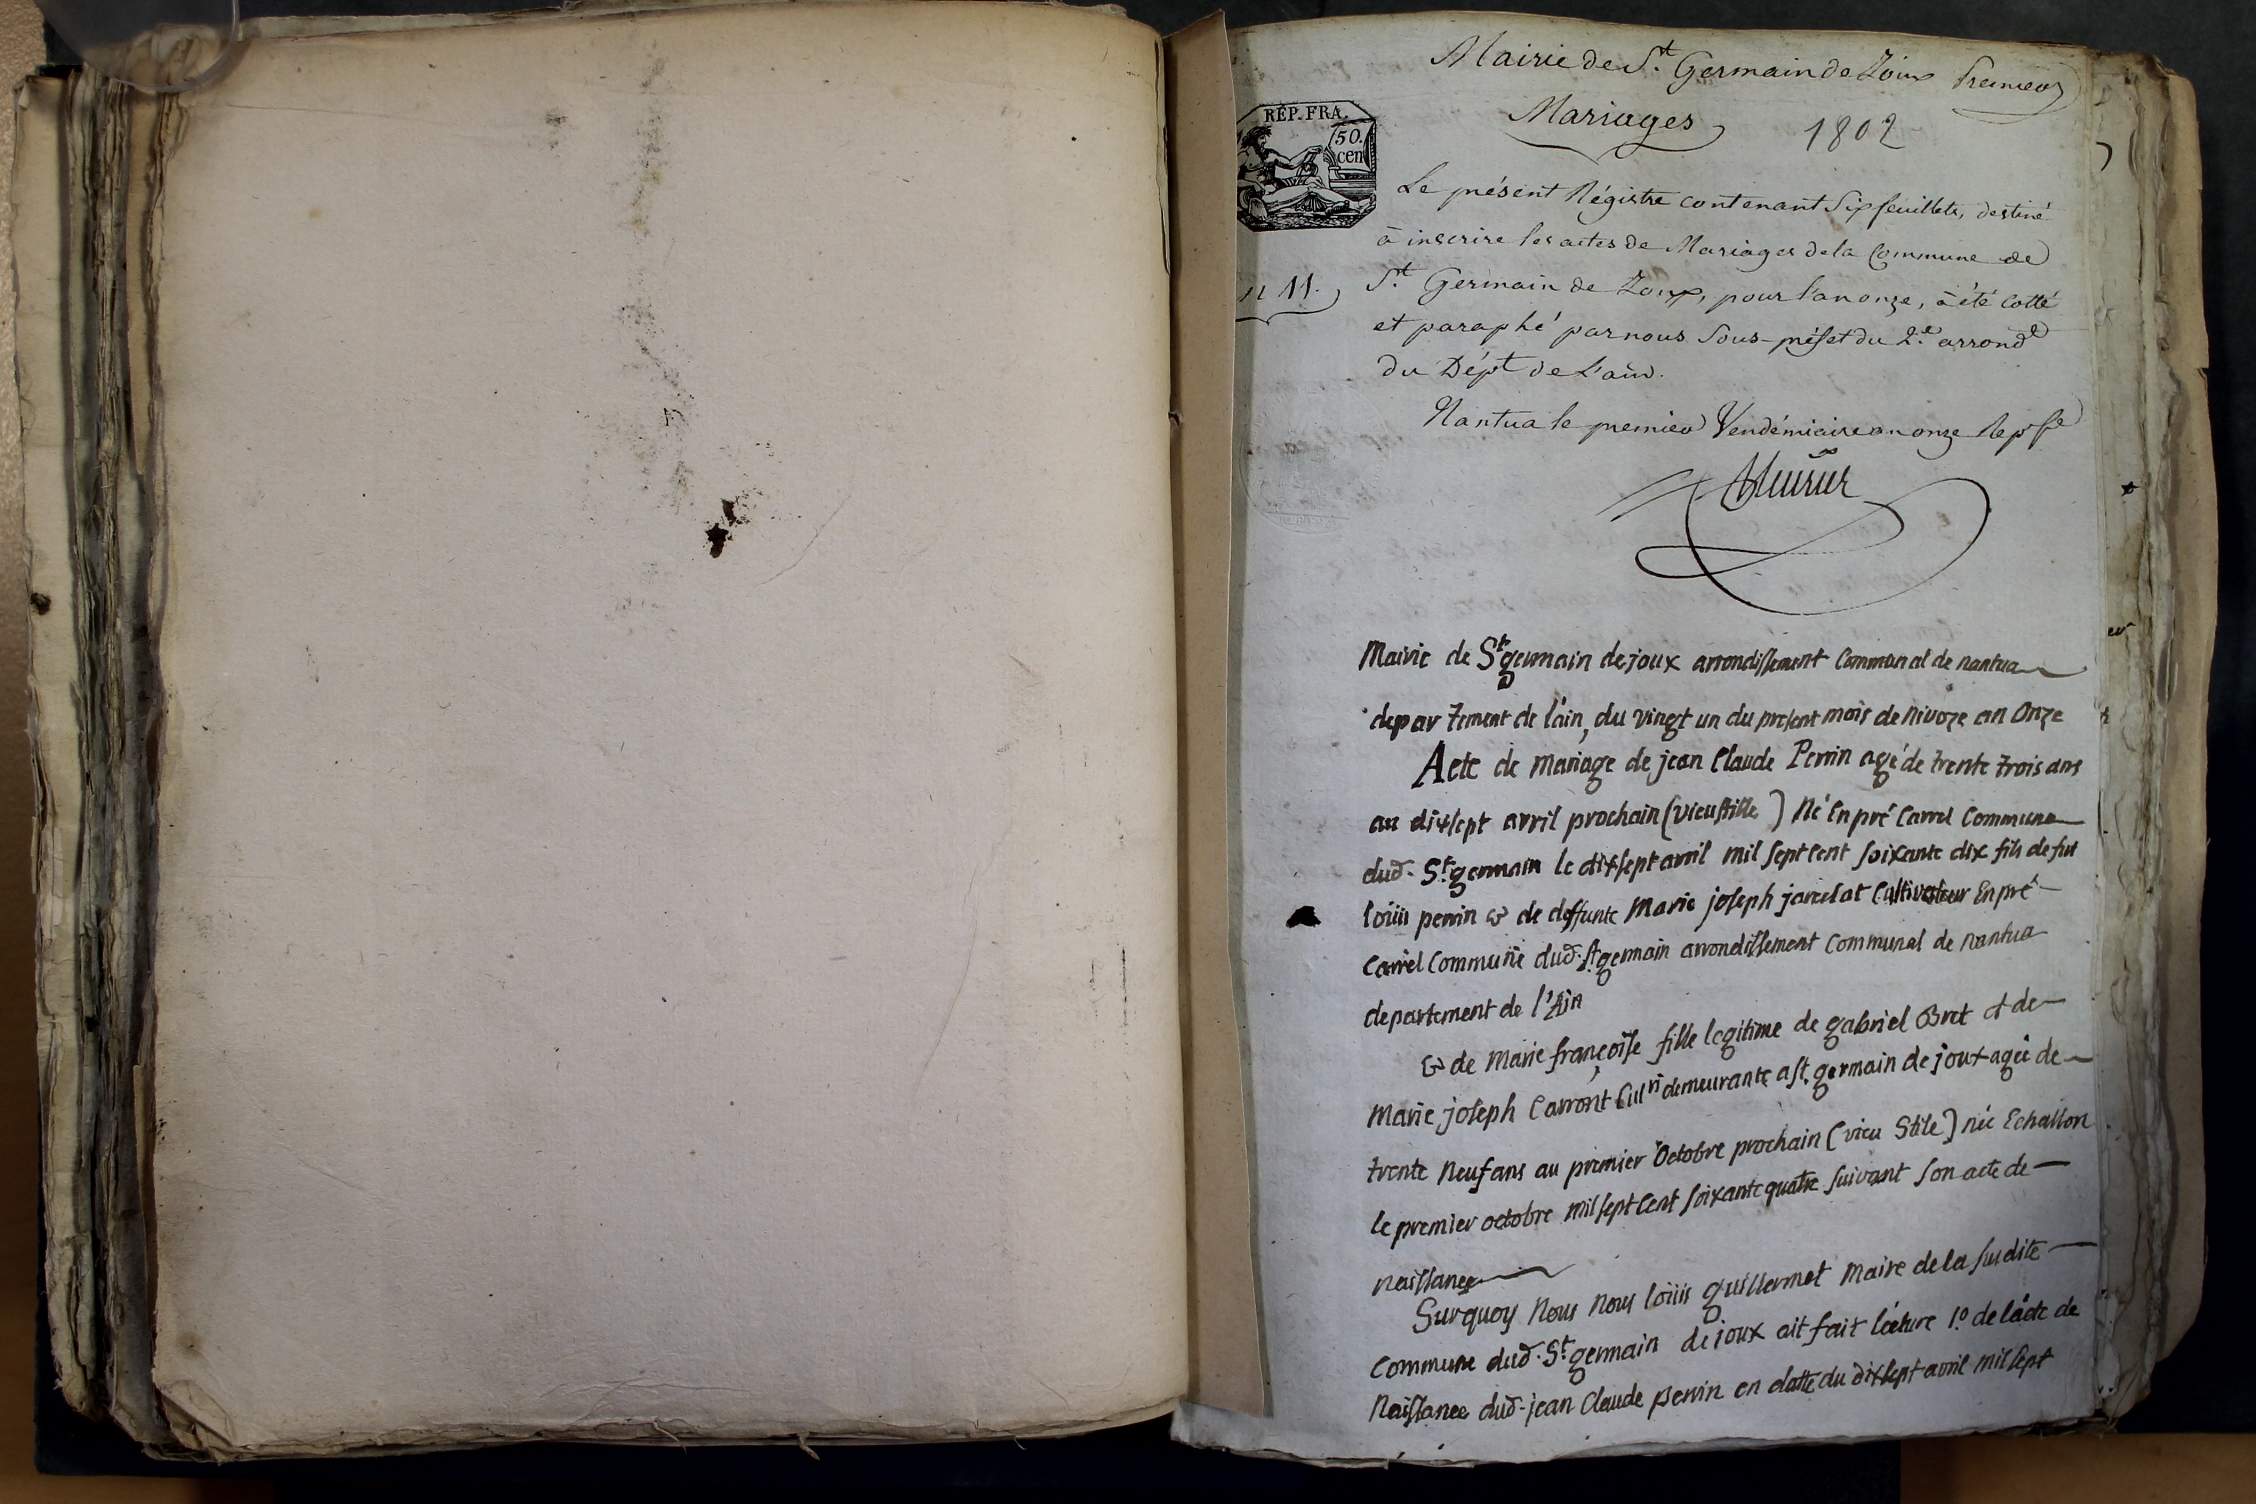 Mairie de St. Germain de Joux Premier
Mariages
1802
RÉP. FRA.
50.
cen
Le présent Régistre contenant Six feuillets, destiné
à inscrire les actes de Mariages de la Commune de
St. Germain de Joux, pour l'an onze, à été cotté
et paraphé par nous Sous-préfet du 2.e arrondt
du Dépt de L'ain.
11.
Nantua le premier Vendémiaire an onze
Mairie de St germain de joux arrondissement Communal de nantua
departement de l'ain, du vingt un du present mois de nivoze an Onze
Acte de mariage de jean Claude Perrin agé de trente trois ans
au dixsept avril prochain (vieu stille) Né En pré Carrel Commune
dud. St. germain le dixsept avril mil sept cent soixante dix fils de fut
loüis perrin & de deffunte Marie joseph Cultivateur En pré
Carrel Commune dud. St germain arrondissement Communal de nantua
departement de l'Ain
& de Marie françoise fille legitime de gabriel Bret et de
Marie joseph Carront Culri demeurante a st. germain de joux agée de
trente Neuf ans au premier Octobre prochain (vieu Stile) née Echallon
le premier octobre mil sept Cent soixante quatre suivant son acte de
naissance
Surquoy Nous Nous loüis guillermet Maire de la susdite
Commune dud. St. germain de joux ait fait lecture 1.o de l'acte de
Naissance dud. jean Claude perrin en datte du dixsept avril mil sept